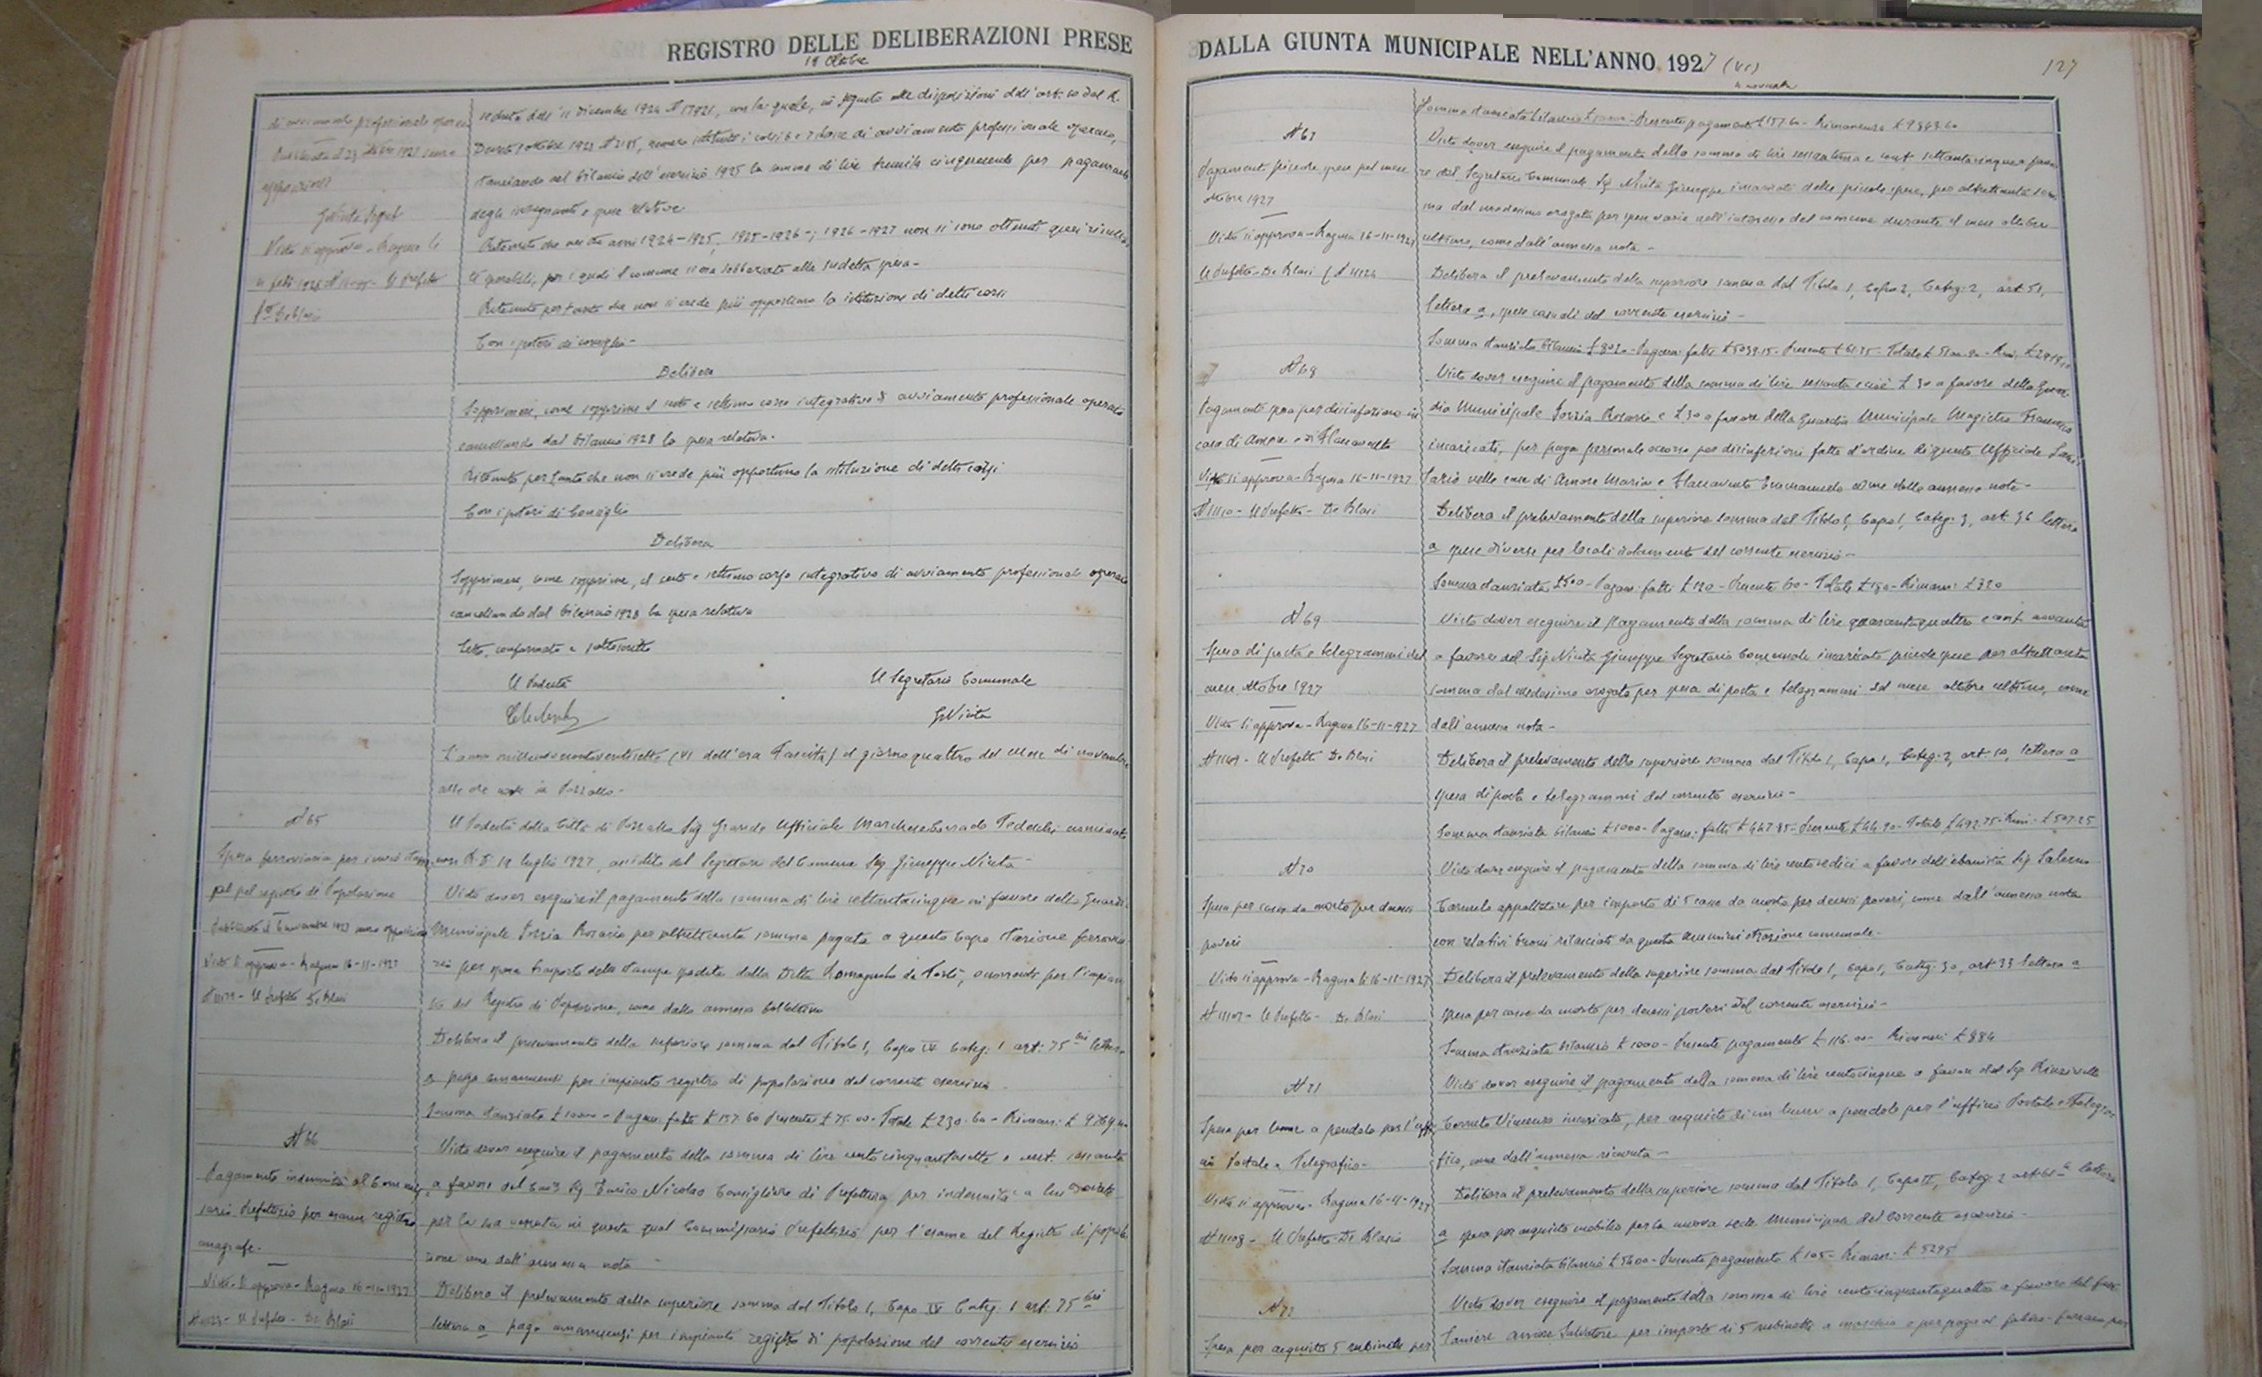 REGISTRO DELLE DELIBERAZIONI PRESE
18 Ottobre
di avviamento professionale operaio
Pubblicata il 23 1927 senza
opposizioni
Visto si approva - Ragusa li
Il Prefetto
De Blasi
seduta dell' 11 Dicembre 1924 N 17021, con la quale, in seguito alle disposizioni dell'art. 10 del R.
Decreto ottobre 1923 N 2185, venne istituito i corsi di avviamento professionale operaio,
stanziando nel bilancio dell'esercizio 1925 la somma di lire tremila cinquecento per pagamento
degli insegnanti e spese relative
Ritenuto che negli anni 1924-1925, 1925-1926-; 1926-1927 non si sono ottenuti quei risulta
ti sperabili, per i quali il comune si era sobbarcato alla sudetta spesa-
Ritenuto pertanto che non si crede più opportuno la istituzione di detti corsi
Con i poteri di consiglio-
Delibera
Sopprimere, come sopprime il sesto e settimo corso integrativo di avviamento professionale operaio
cancellando dal bilancio 1928 la spesa relativa.
Ritenuto pertanto che non si crede più opportuno la istituzione di detti corsi
Con i poteri di Consiglio
Delibera
Sopprimere, come sopprime, il sesto e settimo corso integrativo di avviamento professionale operaio
cancellando dal bilancio 1928 la spesa relativa
Letto, confermato e sottoscritto
Il Podestà
Il Segretario Comunale
GNicita
L'anno millenovecentoventisette (VI dell'era Fascista) il giorno quattro del mese di novembre
alle ore nove in Pozzallo-
N 65
Spesa ferroviaria per invio stam
pati pel registro di Popolazione
Pubblicata il 6 novembre 1927 senza opposizioni
Visto si approva - Ragusa 16-11-1927
Il Prefetto De Blasi
Il Podestà della Città di Pozzallo Sig Grande Ufficiale Marchese Corrado Tedeschi nominato
con R.D. 19 luglio 1927, assistito dal Segretario del Comune Sig Giuseppe Nicita-
Visto dover eseguire il pagamento della somma di lire settantacinque in favore della Guardia
Municipale Sozzia Rosario per altrettanta somma pagata a questo Capo Stazione ferrovia
rio per spesa trasporto delle stampe spedite dalla Ditta Romagnola di Forlì, occorrendo per l'impian
to del Registro di Popolazione, come dalla annesso bollettino
Delibera il prelevamento della superiore somma dal Titolo 1, Capo IV Categ. 1 art: 75 bis lettera
a paga amanuensi per impianto registro di popolazione del corrente esercizio
Somma stanziata £ 10000 - Pagam. fatti £ 157.60 Presente £ 75.00 - Totale £ 230.60 - Riman: £ 9769.40
N 66
Pagamento indennità al Commis
sario Prefettizio per esame registro
anagrafe-
Visto si approva - Ragusa 16-11-1927
Il Prefetto - De Blasi
Visto dover eseguire il pagamento della somma di lire centocinquantasette e cent. sessanta
a favore del Cav Sig Enrico Nicolao Consigliere di Prefettura per indennità a lui dovute
per la sua venuta in questa qual Commissario Prefettizio per l'esame del Registro di popola
zione come dall'annessa nota -
Delibera il prelevamento della superiore somma dal Titolo 1, Capo IV Categ. 1 art: 75 bis
lettera a paga amanuensi per impianto registro di popolazione del corrente esercizio
DALLA GIUNTA MUNICIPALE NELL'ANNO 1927 (VI)
4 novembre
127
Somma stanziata bilancio £ 10000 - Presente pagamento £ 157.60 - Rimanenza £ 9842.60
N 67
Pagamento piccole spese pel mese
ottobre 1927
Visto si approva - Ragusa 16-11-1927
Il Prefetto - De Blasi
Visto dover eseguire il pagamento della somma di lire sessantuna e cent. settantacinque a favo
re del Segretario Comunale Sig Nicita Giuseppe incaricato delle piccole spese, per altrettanta som
ma dal medesimo erogata per spese varie nell'interesse del comune durante il mese ottobre
ultimo, come dall'annessa nota -
Delibera il prelevamento della superiore somma dal Titolo 1, Capo 2, Categ: 2, art 51,
lettera a, spese casuali del corrente esercizio -
N 68
Pagamento spesa per disinfezione in
casa di Amore e di Flaccavento
Visto si approva - Ragusa 16-11-1927
N 11110 - Il Prefetto - De Blasi
Visto dover eseguire il pagamento della somma di lire sessanta e cioè £ 30 a favore della Guar
dia Municipale Sozzia Rosario e £ 30 a favore della Guardia Municipale Magistro Francesco
incaricati, per paga personale occorso per disinfezioni fatte d'ordine di questo Ufficiale Sani
tario nelle case di Amore Maria e Flaccavento Emmanuele come dalla annessa nota-
Delibera il prelevamento della superiore somma dal Titolo 1, Capo 1, Categ: 3, art. 36 lettera
a spese diverse per locali isolamento del corrente esercizio-
Somma stanziata £ 500 - Pagam. fatti £ 120 - Presente 60 - Totale £ 180 - Rimane: £ 320
N 69
Spesa di posta e telegrammi del
mese ottobre 1927
Visto si approva - Ragusa 16-11-1927
N 11109 - Il Prefetto De Blasi
Visto dover eseguire il pagamento della somma di lire quarantaquattro e cent novanta
a favore del Sig Nicita Giuseppe Segretario Comunale incaricato piccole spese per altrettanta
somma dal medesimo erogata per spesa di posta e telegrammi del mese ottobre ultimo, come
dall'annessa nota -
Delibera il prelevamento della superiore somma dal Titolo 1, Capo 1, Categ: 2, art. 10, lettera a
spesa di posta e telegrammi del corrente esercizio-
Somma stanziata bilancio £ 1000 - Pagam. fatti £ 447.85 - Presente £ 44.90 - Totale £ 492.75 - Rim: £ 507.25
N 70
Spesa per casse da morto per decessi
poveri
Visto si approva - Ragusa li 16-11-1927
N 11107 - Il Prefetto - De Blasi
Visto dover eseguire il pagamento della somma di lire centosedici a favore dell'ebanista Sig Salerno
Carmelo appaltatore per importo di 5 casse da morto per decessi poveri, come dall'annessa nota
con relativi buoni rilasciati da questa Amministrazione comunale-
Delibera il prelevamento della superiore somma dal Titolo 1, Capo 1, Categ. 3a, art 33 lettera a
spesa per casse da morto per decessi poveri del corrente esercizio-
Somma stanziata bilancio £ 1000 - Presente pagamento £ 116.00 - Rimane: £ 884
N 71
Spesa per lume a pendolo per l'uffi
cio Postale e Telegrafico-
Visto si approva - Ragusa 16-11-1927
N 11108 - Il Prefetto - De Blasi
Visto dover eseguire il pagamento della somma di lire centocinque a favore del Sig
Corrado Vincenzo incaricato, per acquisto di un lume a pendolo per l'ufficio Postale e Telegra
fico, come dall'annessa ricevuta -
Delibera il prelevamento della superiore somma dal Titolo 1, Capo II, Categ: 2 art: lettera
a spesa per acquisto mobilio per la nuova sede Municipale del corrente esercizio-
Somma stanziata bilancio £ 5400 - Presente pagamento £ 105 - Riman: £ 5295
N 72
Spesa per acquisto 5 rubinetti per
Visto dover eseguire il pagamento della somma di lire centocinquantaquattro a favore del fon
taniere Amore Salvatore per importo di 5 rubinetti a maschio e per paga al fabbro-ferraio per